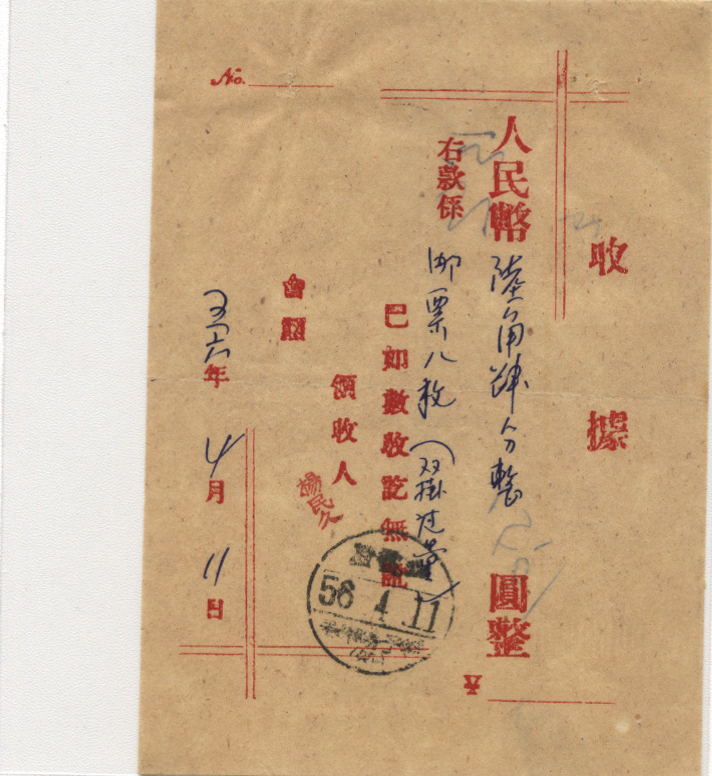 收據
人民幣陸角肆分整 圓整
右款係郵票八枚
已如數收訖無訛
領收人 楊民久
會照
五六年4月11日
No.
56.4.11